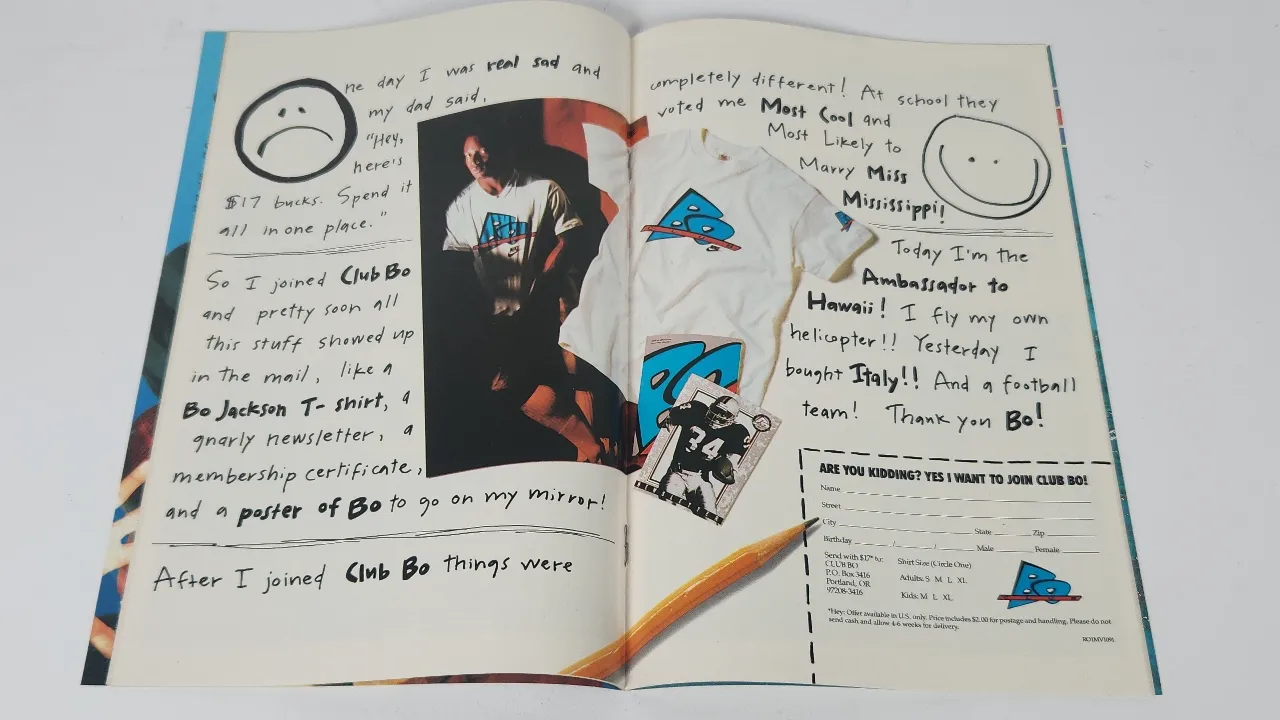 One day I was real sad and
my dad said,
"Hey,
here's
$17 bucks. Spend it
all in one place."
So I joined Club Bo
and pretty soon all
this stuff showed up
in the mail, like a
Bo Jackson T-shirt, a
gnarly newsletter, a
membership certificate,
and a poster of Bo to go on my mirror!
After I joined Club Bo things were
completely different! At school they
voted me Most Cool and
Most Likely to
Marry Miss
Mississippi!
Today I'm the
Ambassador to
Hawaii! I fly my own
helicopter!! Yesterday I
bought Italy!! And a football
team! Thank you Bo!
BO
BO
34
ARE YOU KIDDING? YES I WANT TO JOIN CLUB BO!
Name
Street
City State Zip
Birthday / / Male Female
Send with $17* to:
CLUB BO
P.O. Box 3416
Portland, OR
97208-3416
Shirt Size (Circle One)
Adults: S M L XL
Kids: M L XL
BO
*Hey: Offer available in U.S. only. Price includes $2.00 for postage and handling. Please do not
send cash and allow 4-6 weeks for delivery.